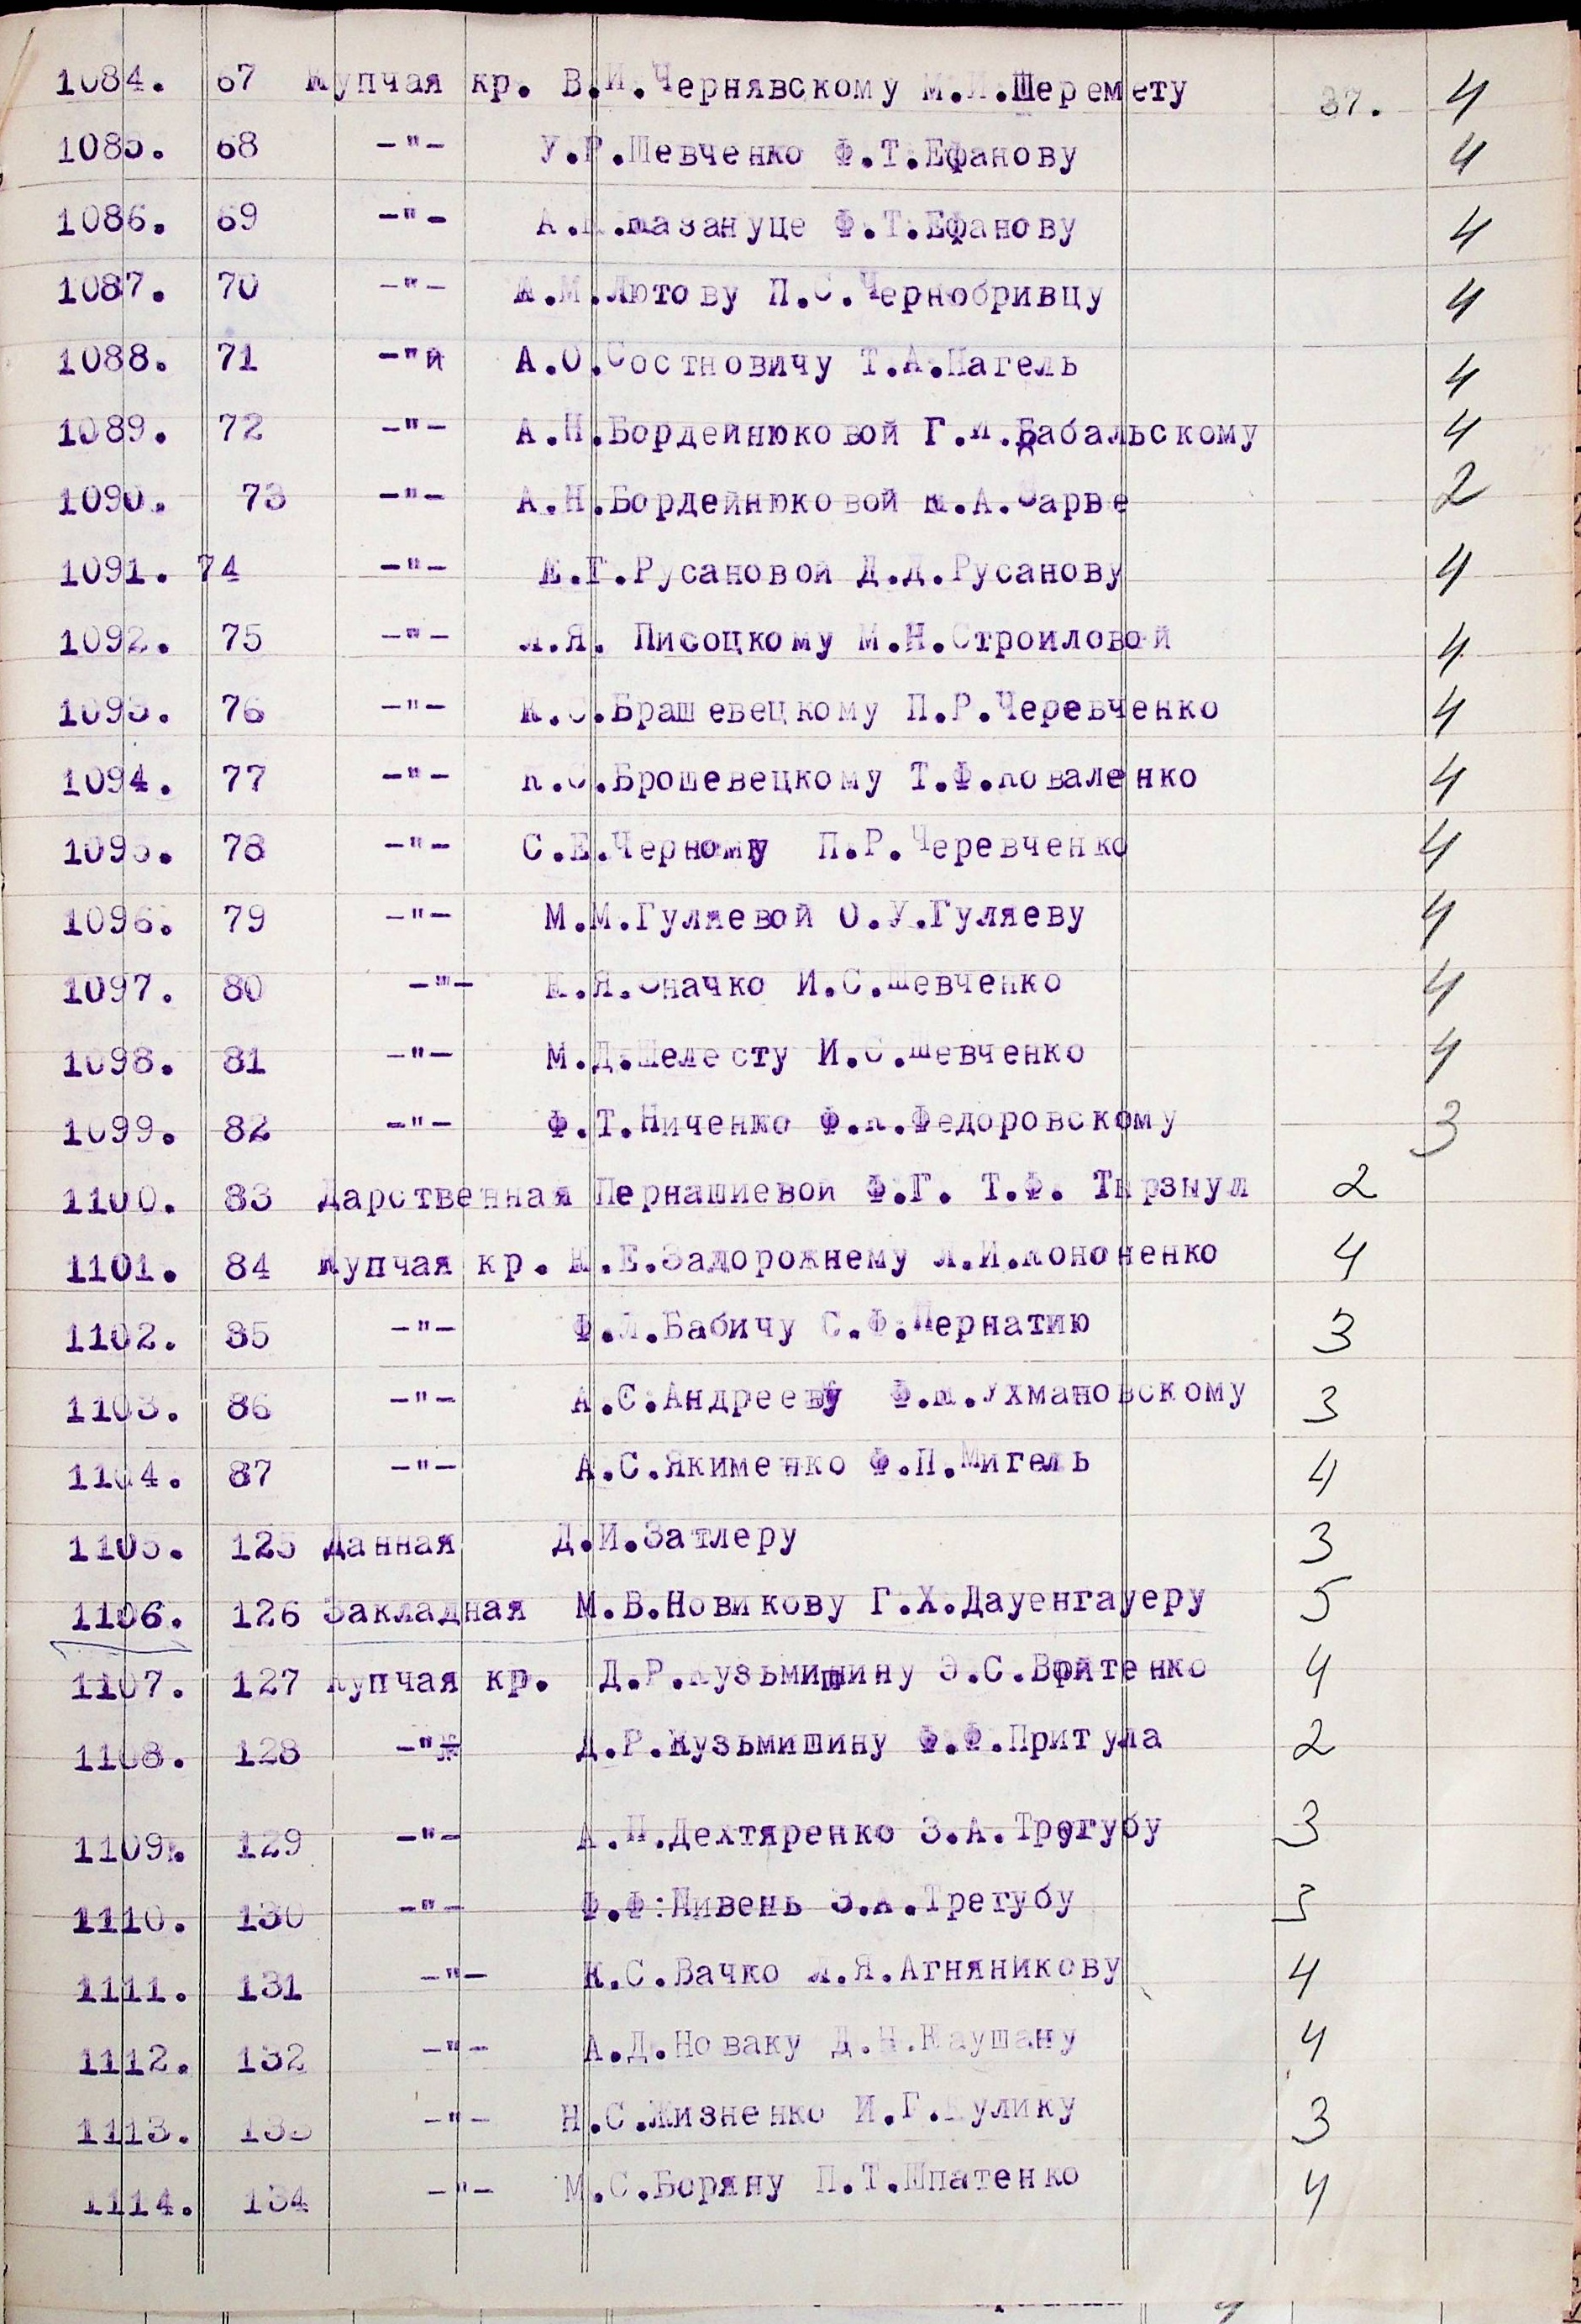 1084. 67 Купчая кр. В.И.Чернявскому М.И.Шеремету 37. 4
1085. 68 -"- У.Г.Шевченко Ф.Т.Ефанову 4
1086. 69 -"- Ф.Т.Ефанову 4
1087. 70 -"- А.М.Лютову П.С.Чернобривцу 4
1088. 71 -"й А.О.Состновичу Т.А.Нагель 4
1089. 72 -"- А.Н.Бордейнюковой Г.И.Бабальскому 4
1090. 73 -"- А.Н.Бордейнюковой Ш.А.Зарве 2
1091. 74 -"- Е.Г.Русановой Д.Д.Русанову 4
1092. 75 -"- Л.Я. Писоцкому М.Н.Строиловой 4
1093. 76 -"- К.С.Брашевецкому П.Р.Черевченко 4
1094. 77 -"- К.С.Брошевецкому Т.Ф.Коваленко 4
1095. 78 -"- С.Е.Черному П.Р.Черевченко 4
1096. 79 -"- М.М.Гуляевой О.У.Гуляеву 4
1097. 80 -"- К.Я.Значко И.С.Шевченко 4
1098. 81 -"- М.Д.Шелесту И.С.Шевченко 4
1099. 82 -"- Ф.Т.Ниченко Ф.К.Федоровскому 3
1100. 83 Дарственная Пернашиевой Ф.Г. Т.Ф. Тырзыул 2
1101. 84 Купчая кр. К.Е.Задорожнему Л.И.Кононенко 4
1102. 85 -"- Ф.Л.Бабичу С.Ф.Пернатию 3
1103. 86 -"- А.С.Андрееву Ф.Ш.Ухмановскому 3
1104. 87 -"- А.С.Якименко Ф.П.Мигель 4
1105. 125 Данная Д.И.Затлеру 3
1106. 126 Закладная М.В.Новикову Г.Х.Дауенгауеру 5
1107. 127 Купчая кр. Д.Р.Кузьмишину Э.С.Войтенко 4
1108. 128 -"- Д.Р.Кузьмишину Ф.Ф.Притула 2
1109. 129 -"- А.П.Дехтяренко З.А.Трегубу 3
1110. 130 -"- Ф.Ф:Пивень З.А.Трегубу 3
1111. 131 -"- К.С.Вачко Л.Я.Агняникову 4
1112. 132 -"- А.Д.Новаку Д.Н.Каушану 4
1113. 133 -"- Н.С.Жизненко И.Г.Кулику 3
1114. 134 -"- М.С.Боряну П.Т.Шпатенко 4